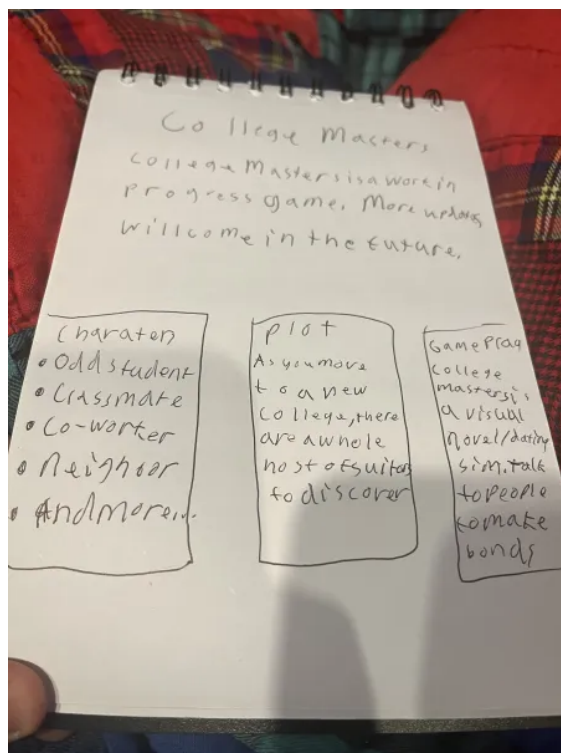 College Masters
College Masters is a work in
progress game. More updates
will come in the future.
Charaten
• Odd student
• Classmate
• Co-worker
• Neighbor
• And more...
Plot
As you move
to a new
college, there
are a whole
host of suitors
to discover
Game Play
College
masters is
a visual
novel/dating
sim. talk
to people
to make
bonds